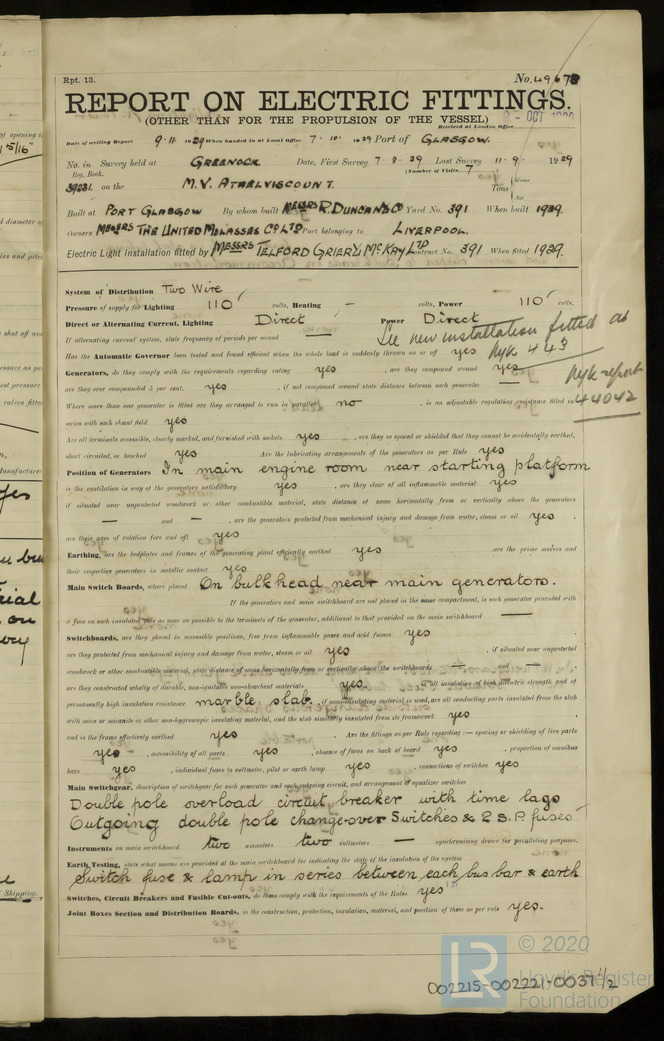 Rpt. 13.
No. 49678
REPORT ON ELECTRIC FITTINGS.
(OTHER THAN FOR THE PROPULSION OF THE VESSEL)
Received at London Office
OCT
Date of writing Report 9.11.1929 When handed in at Local Office 7.10.1929 Port of GLASGOW.
No. in Survey held at GREENOCK Date, First Survey 7.8.29 Last Survey 11.9.1929
Reg. Book. (Number of Visits 7
39231. on the M.V. ATHELVISCOUNT. Tons { Gross Net
Built at PORT GLASGOW By whom built MESSRS R. DUNCAN & CO Yard No. 391 When built 1929.
Owners MESSRS THE UNITED MOLASSES CO LTD Port belonging to LIVERPOOL.
Electric Light Installation fitted by MESSRS TELFORD GRIER & MCKAY LTD Contract No. 391 When fitted 1929.
System of Distribution Two Wire
Pressure of supply for Lighting 110 volts, Heating — volts, Power 110 volts.
Direct or Alternating Current, Lighting Direct Power Direct
If alternating current system, state frequency of periods per second —
See new installation fitted as
Has the Automatic Governor been tested and found efficient when the whole load is suddenly thrown on or off yes
Nyk 443
Generators, do they comply with the requirements regarding rating yes , are they compound wound yes
Nyk report
44042
are they over compounded 5 per cent. yes , if not compound wound state distance between each generator —
Where more than one generator is fitted are they arranged to run in parallel no , is an adjustable regulating resistance fitted in
series with each shunt field yes
Are all terminals accessible, clearly marked, and furnished with sockets yes , are they so spaced or shielded that they cannot be accidentally earthed,
short circuited, or touched yes Are the lubricating arrangements of the generators as per Rule yes
Position of Generators In main engine room near starting platform
is the ventilation in way of the generators satisfactory yes , are they clear of all inflammable material yes
if situated near unprotected woodwork or other combustible material, state distance of same horizontally from or vertically above the generators
— and — , are the generators protected from mechanical injury and damage from water, steam or oil yes ,
are their axes of rotation fore and aft yes
Earthing, are the bedplates and frames of the generating plant efficiently earthed yes are the prime movers and
their respective generators in metallic contact yes
Main Switch Boards, where placed On bulkhead near main generators.
If the generators and main switchboard are not placed in the same compartment, is each generator provided with
a fuse on each insulated pole as near as possible to the terminals of the generator, additional to that provided on the main switchboard —
Switchboards, are they placed in accessible positions, free from inflammable gases and acid fumes yes
are they protected from mechanical injury and damage from water, steam or oil yes , if situated near unprotected
woodwork or other combustible material, state distance of same horizontally from or vertically above the switchboards — and — ,
are they constructed wholly of durable, non-ignitable non-absorbent materials yes , is all insulation of high dielectric strength and of
permanently high insulation resistance marble slab. if semi-insulating material is used, are all conducting parts insulated from the slab
with mica or micanite or other non-hygroscopic insulating material, and the slab similarly insulated from its framework yes
and is the frame effectively earthed yes Are the fittings as per Rule regarding:— spacing or shielding of live parts
yes , accessibility of all parts yes , absence of fuses on back of board yes , proportion of omnibus
bars yes , individual fuses to voltmeter, pilot or earth lamp yes , connections of switches yes
Main Switchgear, description of switchgear for each generator and each outgoing circuit, and arrangement of equalizer switches
Double pole overload circuit breaker with time lags
Outgoing double pole change-over Switches & D.P. fuses
Instruments on main switchboard two ammeters two voltmeters — synchronising device for paralleling purposes.
Earth Testing, state what means are provided at the main switchboard for indicating the state of the insulation of the system
Switch fuse & lamp in series between each bus bar & earth
Switches, Circuit Breakers and Fusible Cut-outs, do these comply with the requirements of the Rules yes
Joint Boxes Section and Distribution Boards, is the construction, protection, insulation, material, and position of these as per rule yes.
© 2020
LR
Lloyd's Register
Foundation
002215-002221-0037 1/2